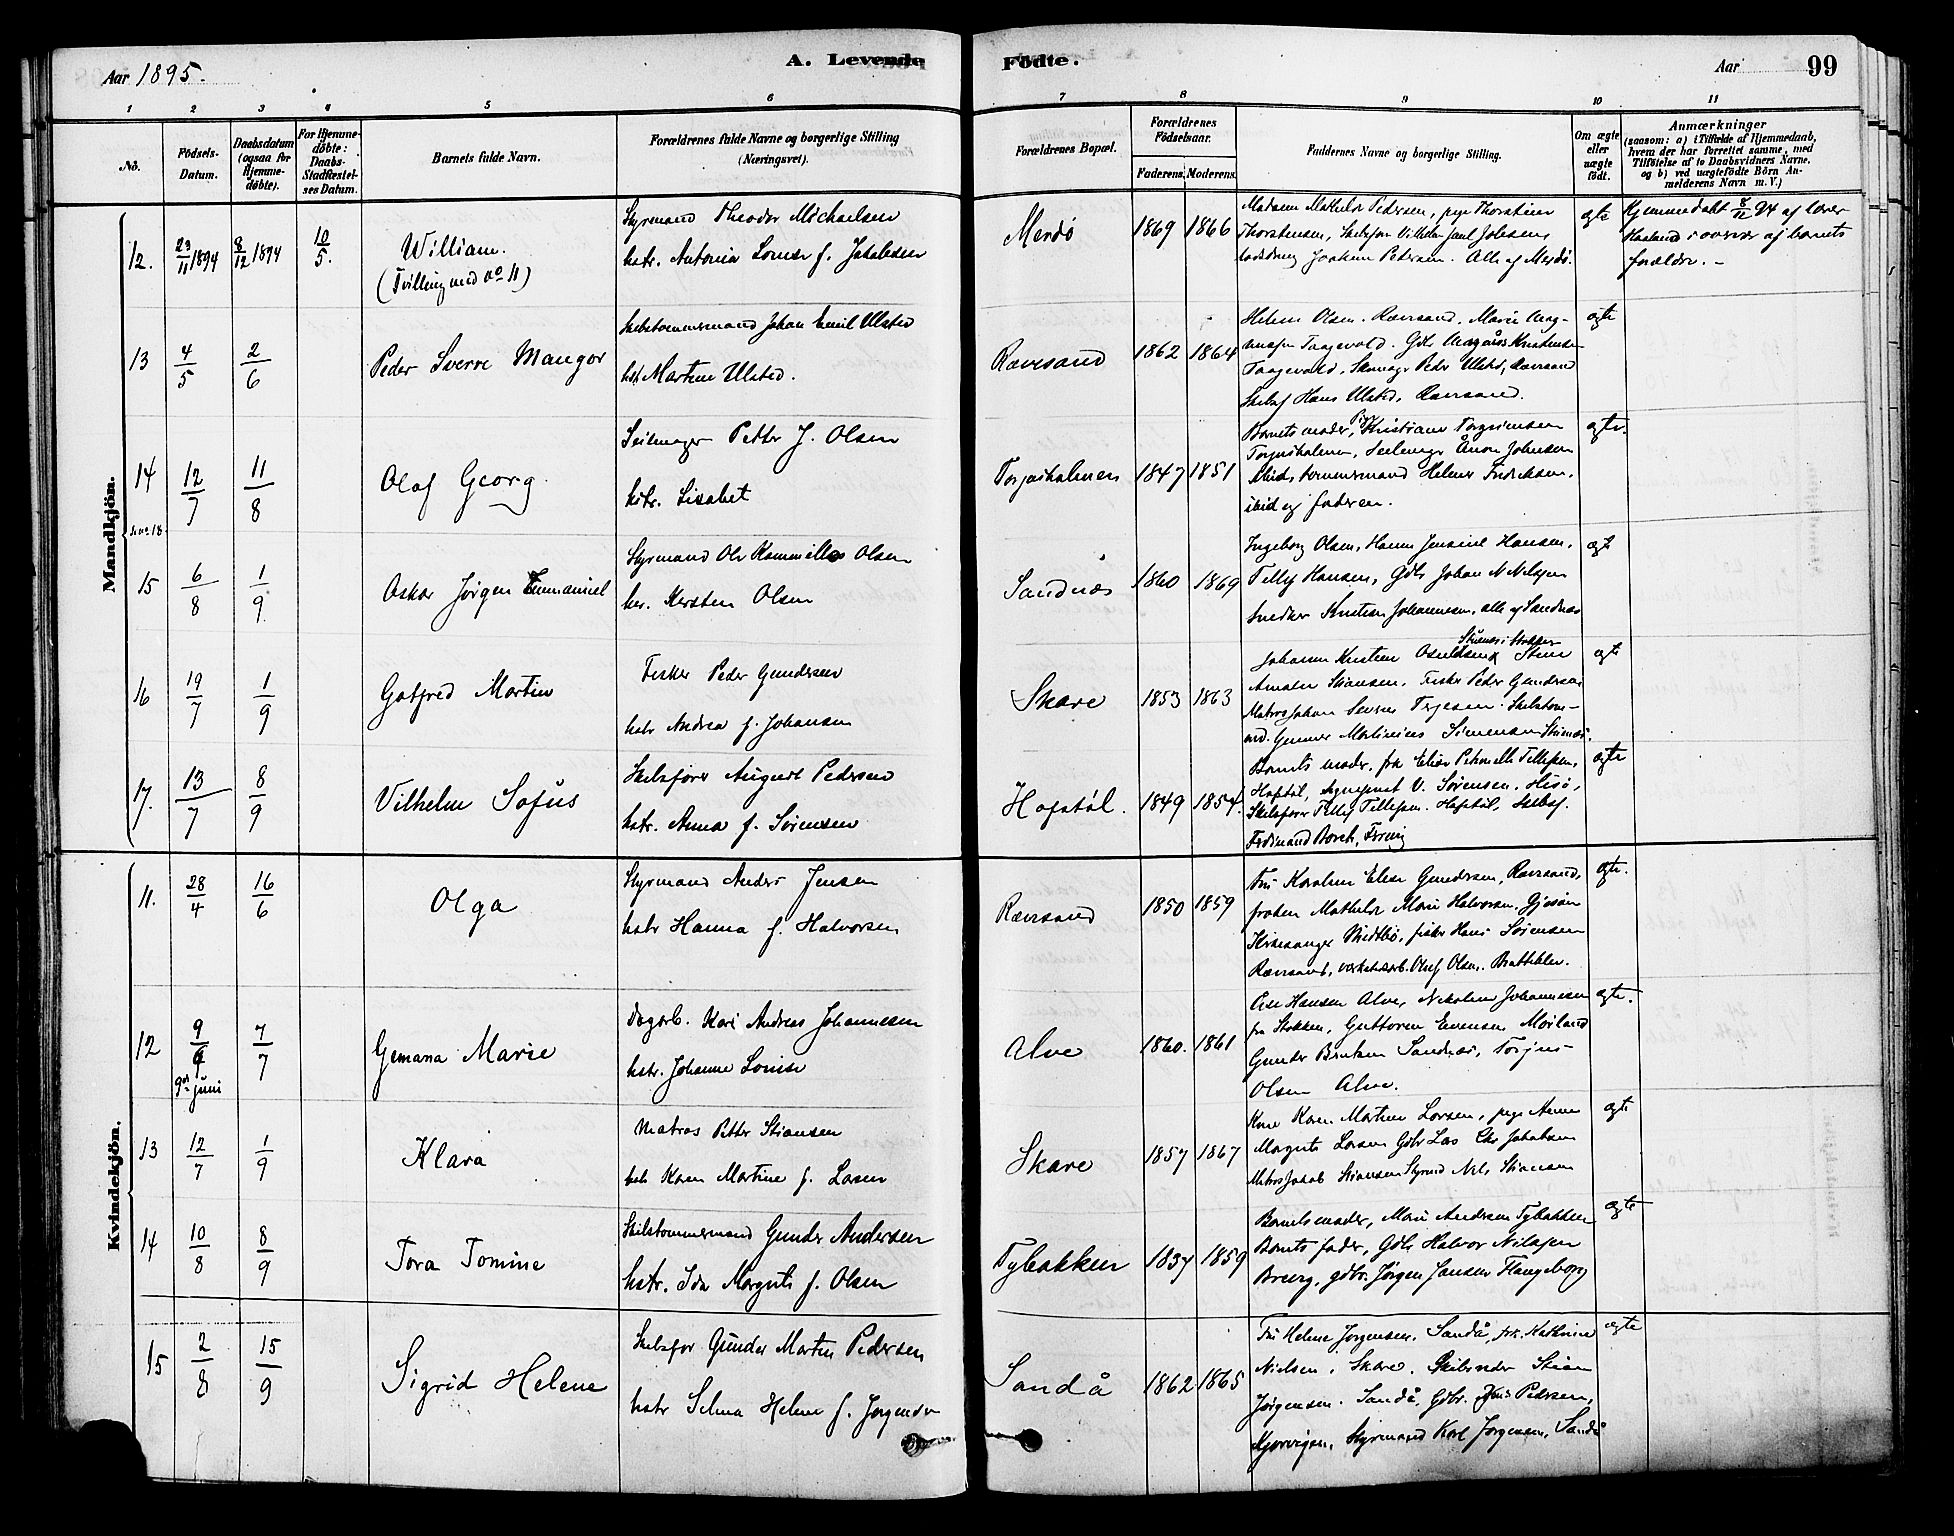 Aar 1895.
A. Levende
Fødte.
Aar
99
1 2 3 4 5 6 7 8 9 10 11
No.
Fødsels-Datum.
Daabsdatum (ogsaa for Hjemme-døbte).
For Hjemme-døbte: Daabs-Stadfæstel-ses Datum.
Barnets fulde Navn.
Forældrenes fulde Navne og borgerlige Stilling
(Næringsvei).
Forældrenes Bopæl.
Forældrenes Fødselsaar.
Faderens. Moderens.
Faddernes Navne og borgerlige Stilling.
Om ægte eller uægte født.
Anmærkninger
(saasom: a) i Tilfælde af Hjemmedaab,
hvem der har forrettet samme, med
Tilføielse af to Daabsvidners Navne,
og b) ved uægtefødte Børn An-
melderens Navn m. V.)
Mandkjøn.
12. 23/11 1894 8/12 1894 10/5.
William.
(Tvilling med no 11)
Styrmand Theodor Michaelsen
hstr. Antonia Lovise f. Jakobsen
Merdø 1869 1866
Madam Mathilde Pedersen, pige Thorstine
Thorstensen, Skibsfør Vilhelm Paul Jobsen,
Joakim Pedersen. Alle af Merdø.
ægte
Hjemmedøbt 8/12 94 af lærer
Haaland i overvær af barnets
forældre. –
13 4/5 2/6
Peder Sverre Mangor
Skibstømmermand Johan Emil Ulsted
hst Martine Ulsted.
Rævesand 1862 1864
Helene Olsen. Rævesand. Marie Mag-
nussen Taagevold. Gdbr Magnus Kristensen
Taagevold, Peder Ulsted, Rævesand
Skibsf Hans Ulsted, Rævesand.
ægte
14 12/7 11/8
se no. 18
Olaf Georg.
Seilmager Petter J. Olsen
hstr. Lisabet
Torjusholmen 1847 1851
Barnets moder, Pige Kristiane Torgrimsen
Torjusholmen, Seilmager Anon Johnsen
ibid, tømmermand Helmer Fredriksen,
ibid og faderen.
ægte.
15 6/8 1/9
Oskar Jørgen Emmanuel
Styrmand Ole Kommillas Olsen
hu. Kersten Olsen
Sandnæs 1860 1869
Ingeborg Olsen, Hanna Jensine Hansen,
Tellef Hansen, Gdbr Johan N Nilssen
Snedker Kristian Johannesen, alle af Sandnæs
ægte
16 19/7 1/9
Gotfred Martin
Fisker Peder Gundersen
hstr Andrea f. Johansen
Skare 1853 1863
Skinnes i Stokken
Johanne Kristine Osuldsen, Stine
Amalie Stiansen, Fisker Peder Gundersen
Matros Johan Severin Terjesen. Skibstøm-
md. Gunner Martinius Simensen Skinnes.
ægte
17. 13/7 8/9
Vilhelm Sofus
Skibsfører August Pedersen
hstr. Anna f. Sørensen
Hofstøl. 1849 1854.
Barnets moder, frk Elise Petronelle Tellefsen,
Hofstøl, V. Sørensen, Hisø,
Skibsfører Tellef Tellefsen. Hofstøl, Skibsf.
Ferdinand Boreh, Færvig
ægte
Kvindekjøn.
11. 28/4 16/6
Olga
Styrmand Anders Jensen
hstr Hanna f. Halvorsen
Rævesand 1850 1859
Fru Karoline Elise Gundersen, Rævesand,
frøken Mathilde Marie Halvorsen, Gjesøen
Kirkesanger Midtbø, fisker Hans Sørensen
Rævesand, verkstedarb. Oluf Olsen. Brattekleiv.
ægte.
12 9/6 7/7
9de juni
Gemana Marie
Dagarb. Karl Andreas Johannesen
hstr. Johanne Louise
Alve 1860. 1861
Else Hansen Alve, Nikoline Johannesen
fra Stokken, Guttorm Evensen Moiland
Gunder Sandnæs, Torjus
Olsen Alve.
ægte.
13 12/7 1/9
Klara
Matros Petter Stiansen
hstr Karen Martine f. Larsen
Skare 1857 1867
Kone Karen Martine Larsen, pige Anne
Margrete Larsen Gdbr Lars Chr Jakobsen
Matros Jakob Stiansen Styrmd Nils Stiansen
ægte
14 10/8 8/9
Tora Tomine
Skibstømmermand Gunder Andersen
hstr. Ida Margrete f. Olsen
Tybakken 1837 1859
Barnets moder, Marie Andersen Tybakken
Barnets fader, Gdbr Halvor Nilssen
Breivig, gdbr. Jørgen Jansen Haugeborg
ægte
15 2/8 15/9
Sigrid Helene
Skibsfør Gunder Martin Pedersen
hstr Selma Helene f. Jørgensen
Sandå 1862 1865
Fru Helene Jørgensen, Sandå, frk. Kathrine
Nielsen, Skare. Skibsreder Stian
Jørgensen. Sandå, Gdbr. Jens Pedersen,
Kjørvigen, Styrmand Karl Jørgensen, Sandå
ægte